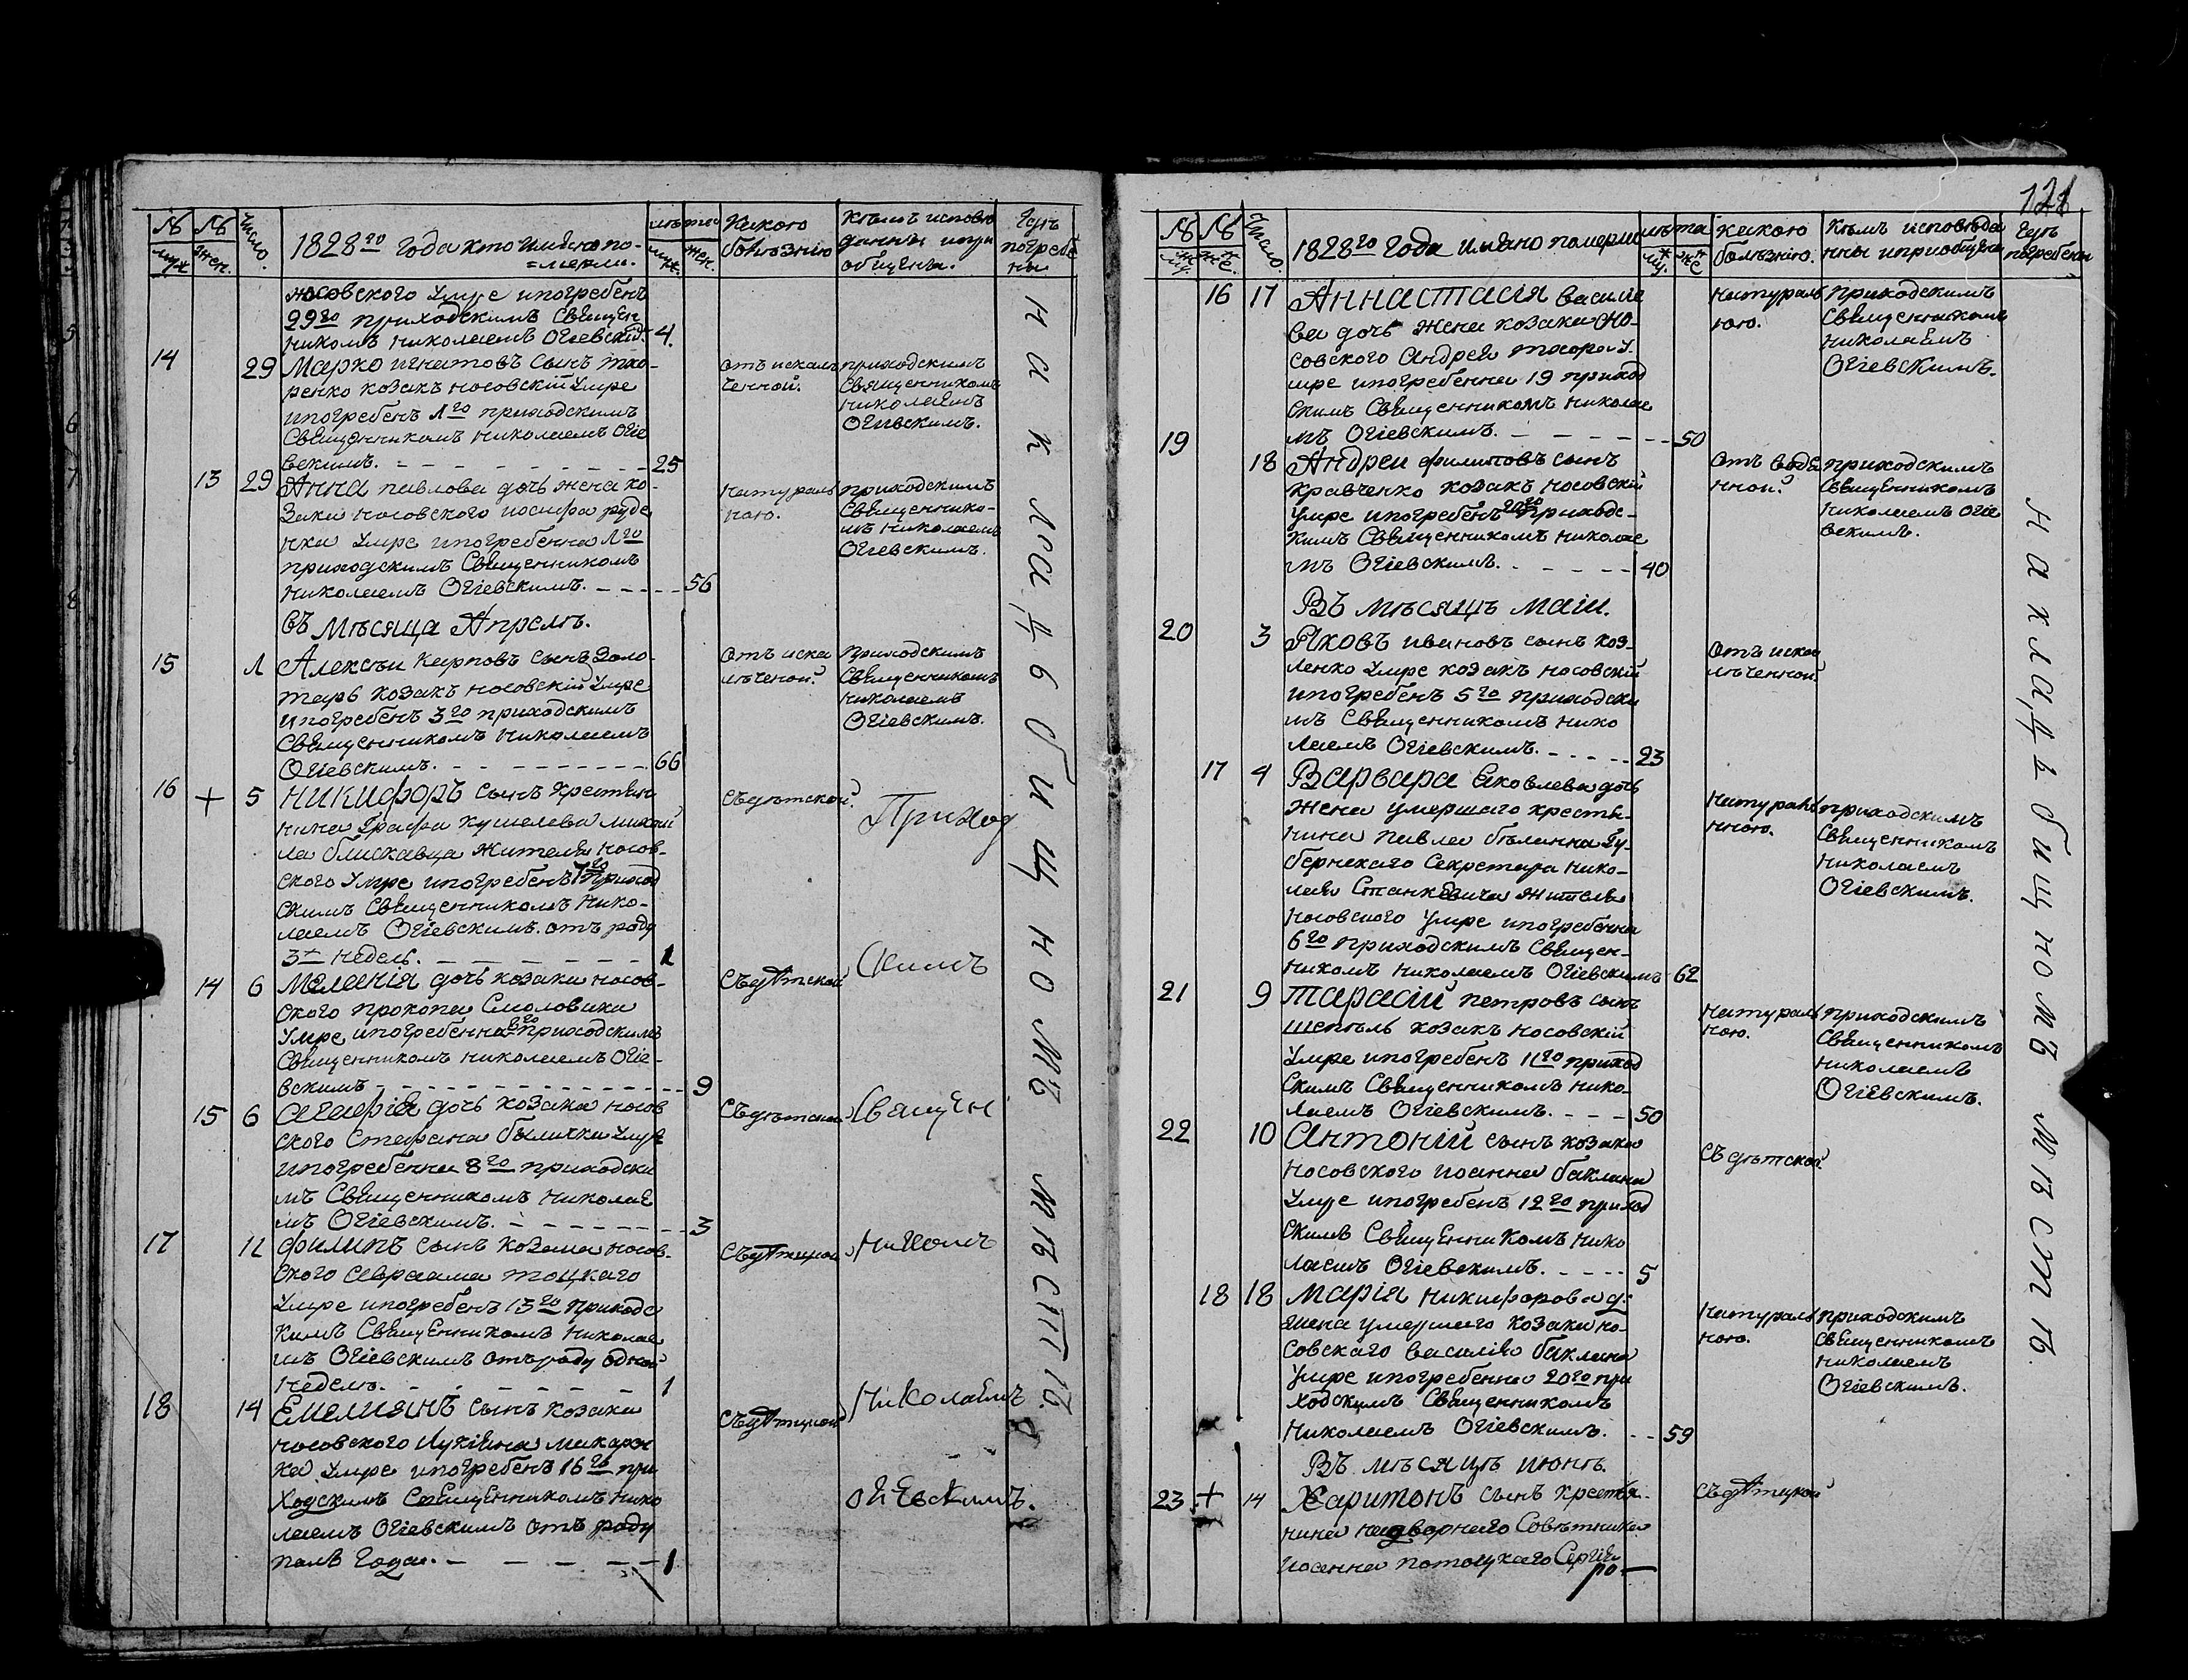 № № Число. 1828го года кто имено по- лѣта Какою Кѣмъ исповѣ Гдѣ
муж жен. =мерли. муж. жен. болѣзнію даннъ ипри погребе
общены. ны
носовского умре ипогребенъ
29го приходскимъ Священ
никомъ николаемъ Огіевскім. 4.
14 29 Марко игнатовъ сынъ тхо-
ренко козакъ носовскій умре
ипогребенъ 1го приходскимъ
Священникомъ николаемъ Огіе
вскимъ. 25
приходскимъ
Священникомъ
николаемъ
Огіевскимъ.
13 29 Анна павлова дочь жена ко-
зака носовского иосифа руде
нка умре ипогребенна 1го
приходскимъ Священникомъ
николаемъ Огіевскимъ. 56
натураль
ною.
приходскимъ
Священнико-
мъ николаемъ
Огіевскимъ.
въ Мѣсяца Апрелѣ.
15 1 Алексѣи карповъ сынъ Золо-
тарь козакъ носовскій умре
ипогребенъ 3го приходскимъ
Священникомъ николаемъ
Огіевскимъ. 66
отъ иска
лѣченой.
приходскимъ
Священникомъ
николаемъ
Огіевскимъ.
16 + 5 Никифоръ сынъ крестяни
нина Графа кушелева михай
ла блискавца жителя носов-
ского умре ипогребенъ 7го приход
скимъ Священникомъ нико-
лаемъ Огіевскимъ. отъ роду
3х недель. 1
съдѣтской.
Приход
14 6 Меланія дочь козака носов-
ского прокопа Смоловика
умре ипогребенна 8го приходскимъ
Священникомъ николаемъ Огіе-
вскимъ 9
съдѣтской
скимъ
15 6 Агафія дочь козака носов
ского Стефана былички умре
ипогребенна 8го приходски
мъ Священникомъ николае
мъ Огіевскимъ. 3
съдѣтской
Священ
17 11 Филипъ сынъ козака носов-
ского Авраама тоцкаго
умре ипогребенъ 13го приходс
кимъ Священникомъ николае
мъ Огіевскимъ отъроду одной
неделѣ. 1
съдѣтской
никомъ
18 14 Емелиянъ сынъ козака
носовского Лукіяна макарен
ка умре ипогребенъ 16го при
ходскимъ Священникомъ нико
лаемъ Огіевскимъ отъ роду
полъ года. 1
съдѣтской
Николаемъ
огіевскимъ.
на кладъбищномъ мѣстѣ.
121
№ № Число. 1828го года имено померли лѣта какою Кѣмъ исповѣда Гдѣ
му. же. му. же болѣзнію. нны иприобщены погребены
16 17 Аннастасія василіе
ва дочь жена козака но-
совского Андрея тхора у-
мре ипогребенна 19 приход
скимъ Священникомъ николае
мъ Огіевскимъ. 50
натураль
ною.
приходскимъ
Священникомъ
николаемъ
Огіевскимъ.
19 18 Андреи филиповъ сынъ
кравченко козакъ носовскій
умре ипогребенъ 20го приходс-
кимъ Священникомъ николае
мъ Огіевскимъ. 40
отъ водя
нной.
приходскимъ
Священникомъ
николаемъ Огіе
вскимъ.
Въ мѣсяцѣ маіи.
20 3 Яковъ ивановъ сынъ коз-
ленко умре козакъ носовскій
ипогребенъ 5го приходски
мъ Священникомъ нико
лаемъ Огіевскимъ. 23
отъ иска
лѣченной.
17 4 Варвара Яковлева дочь
жена умершаго крестя-
нина павла бѣланна Гу-
бернскаго Секретара нико-
лая Станкевича жителя
носовского умре ипогребенна
6го приходскимъ Священ-
никомъ николаемъ Огіевскимъ 62
натураль
нною.
приходскимъ
Священникомъ
николаемъ
Огіевскимъ.
21 9 Тарасій петровъ сынъ
шепѣль козакъ носовскій
умре ипогребенъ 11го приход
скимъ Священникомъ нико-
лаемъ Огіевскимъ. 50
натураль
ною.
приходскимъ
Священникомъ
николаемъ
Огіевскимъ.
22 10 Антоній сынъ козака
носовского иоанна баклана
умре ипогребенъ 12го приход
скимъ Священникомъ нико
лаемъ Огіевскимъ. 5
съдѣтской.
18 18 Марія никифорова д:
жена умершего козака но-
совскаго василія баклана
умре ипогребенна 20го при
ходскимъ Священникомъ
николаемъ Огіевскимъ. 59
натураль
ною.
приходскимъ
священникомъ
николаемъ
Огіевскимъ.
Въ мѣсяцѣ июнѣ.
23 + 14 Харитонъ сынъ крестья-
нина надворнаго Совѣтника
иосанна потоцкаго Сергія
ро—
съдѣтской
на кладъбищномъ мѣстѣ.